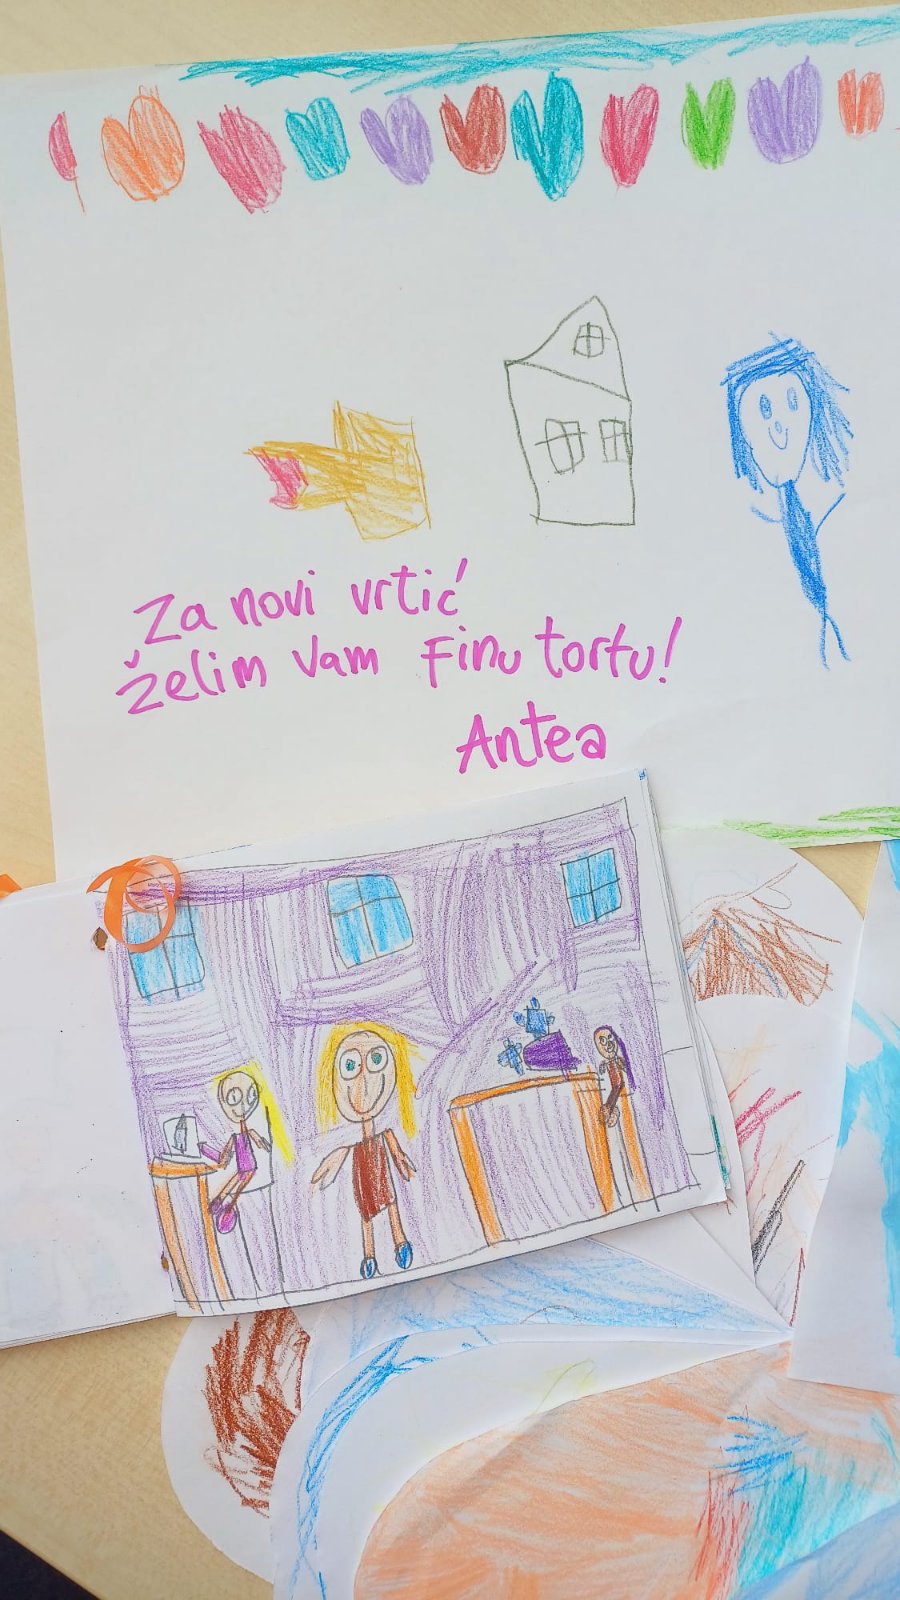 Za novi vrtić
želim vam Finu tortu!
Antea